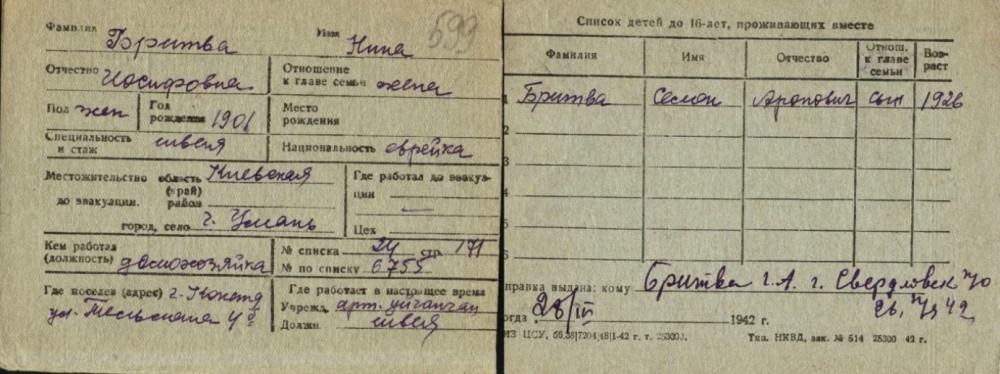 Фамилия Бритва Имя Нина 599
Отчество Иосифовна Отношение к главе семьи жена
Пол жен Год рождения 1901 Место рождения
Специальность и стаж швея Национальность еврейка
Местожительство область Киевская
(край)
район
до эвакуации.
город, село г. Умань
Где работал до эвакуации —
Цех
Кем работал (должность) домохозяйка
№ списка 24 стр. 171
№ по списку 6755
Где поселен (адрес) г.
ул. Тельмана
Где работает в настоящее время
Учрежд. арт.
Должн швея
Список детей до 16-лет, проживающих вместе
Фамилия Имя Отчество Отнош. к главе семьи Возраст
1 Бритва Семен Аронович сын 1926
2
3
4
5
6
правка выдана: кому Бритва г. А. г. Свердловск
огда 28/III 1942 г.
ИЗ ЦСУ,
Тип. НКВД, зак. № 514 25300 42 г.